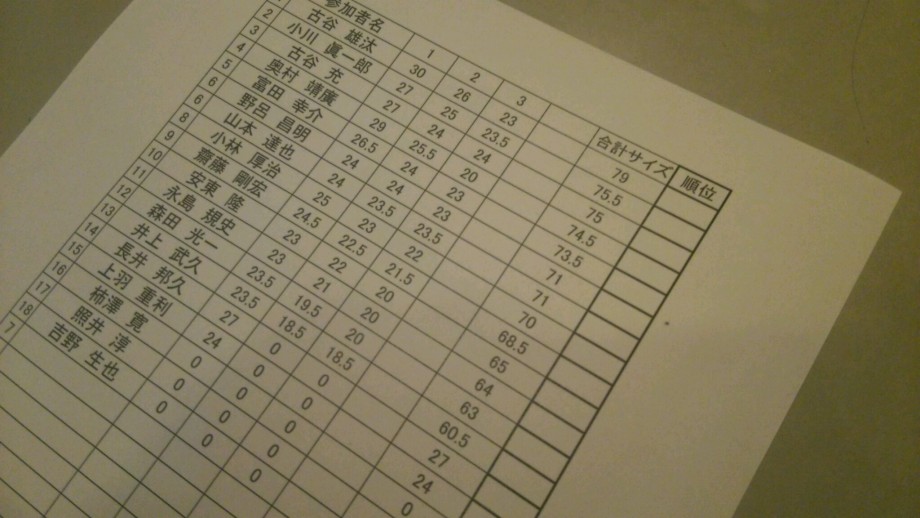 参加者名 1 2 3 合計サイズ 順位
古谷 雄汰 30 26 23 79
2 小川 眞一郎 27 25 23.5 75.5
3 古谷 充 27 24 24 75
4 奥村 靖廣 29 25.5 20 74.5
5 富田 幸介 26.5 24 23 73.5
6 野呂 昌明 24 24 23 71
6 山本 達也 24 23.5 23.5 71
8 小林 厚治 25 22 70
9 齋藤 剛宏 24.5 22.5 21.5 68.5
10 安東 隆 23 22 20 65
11 永島 規史 23 21 20 64
12 森田 光一 23.5 19.5 20 63
13 井上 武久 23.5 18.5 18.5 60.5
14 長井 邦久 27 0 0 27
15 上羽 重利 24 0 0 24
16 柿澤 寛 0 0 0 0
17 照井 淳 0 0 0
18 吉野 生也 0 0 0
7